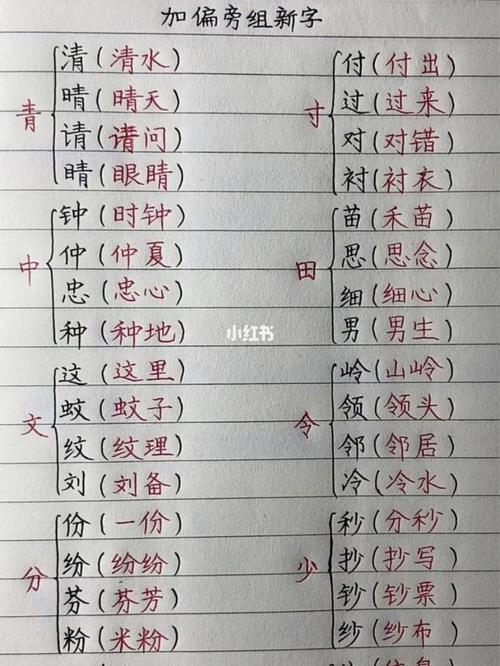 加偏旁组新字
青
清(清水)
晴(晴天)
请(请问)
睛(眼睛)
寸
付(付出)
过(过来)
对(对错)
衬(衬衣)
中
钟(时钟)
仲(仲夏)
忠(忠心)
种(种地)
田
苗(禾苗)
思(思念)
细(细心)
男(男生)
小红书
文
这(这里)
蚊(蚊子)
纹(纹理)
刘(刘备)
令
岭(山岭)
领(领头)
邻(邻居)
冷(冷水)
分
份(一份)
纷(纷纷)
芬(芬芳)
粉(米粉)
少
秒(分秒)
抄(抄写)
钞(钞票)
纱(纱布)